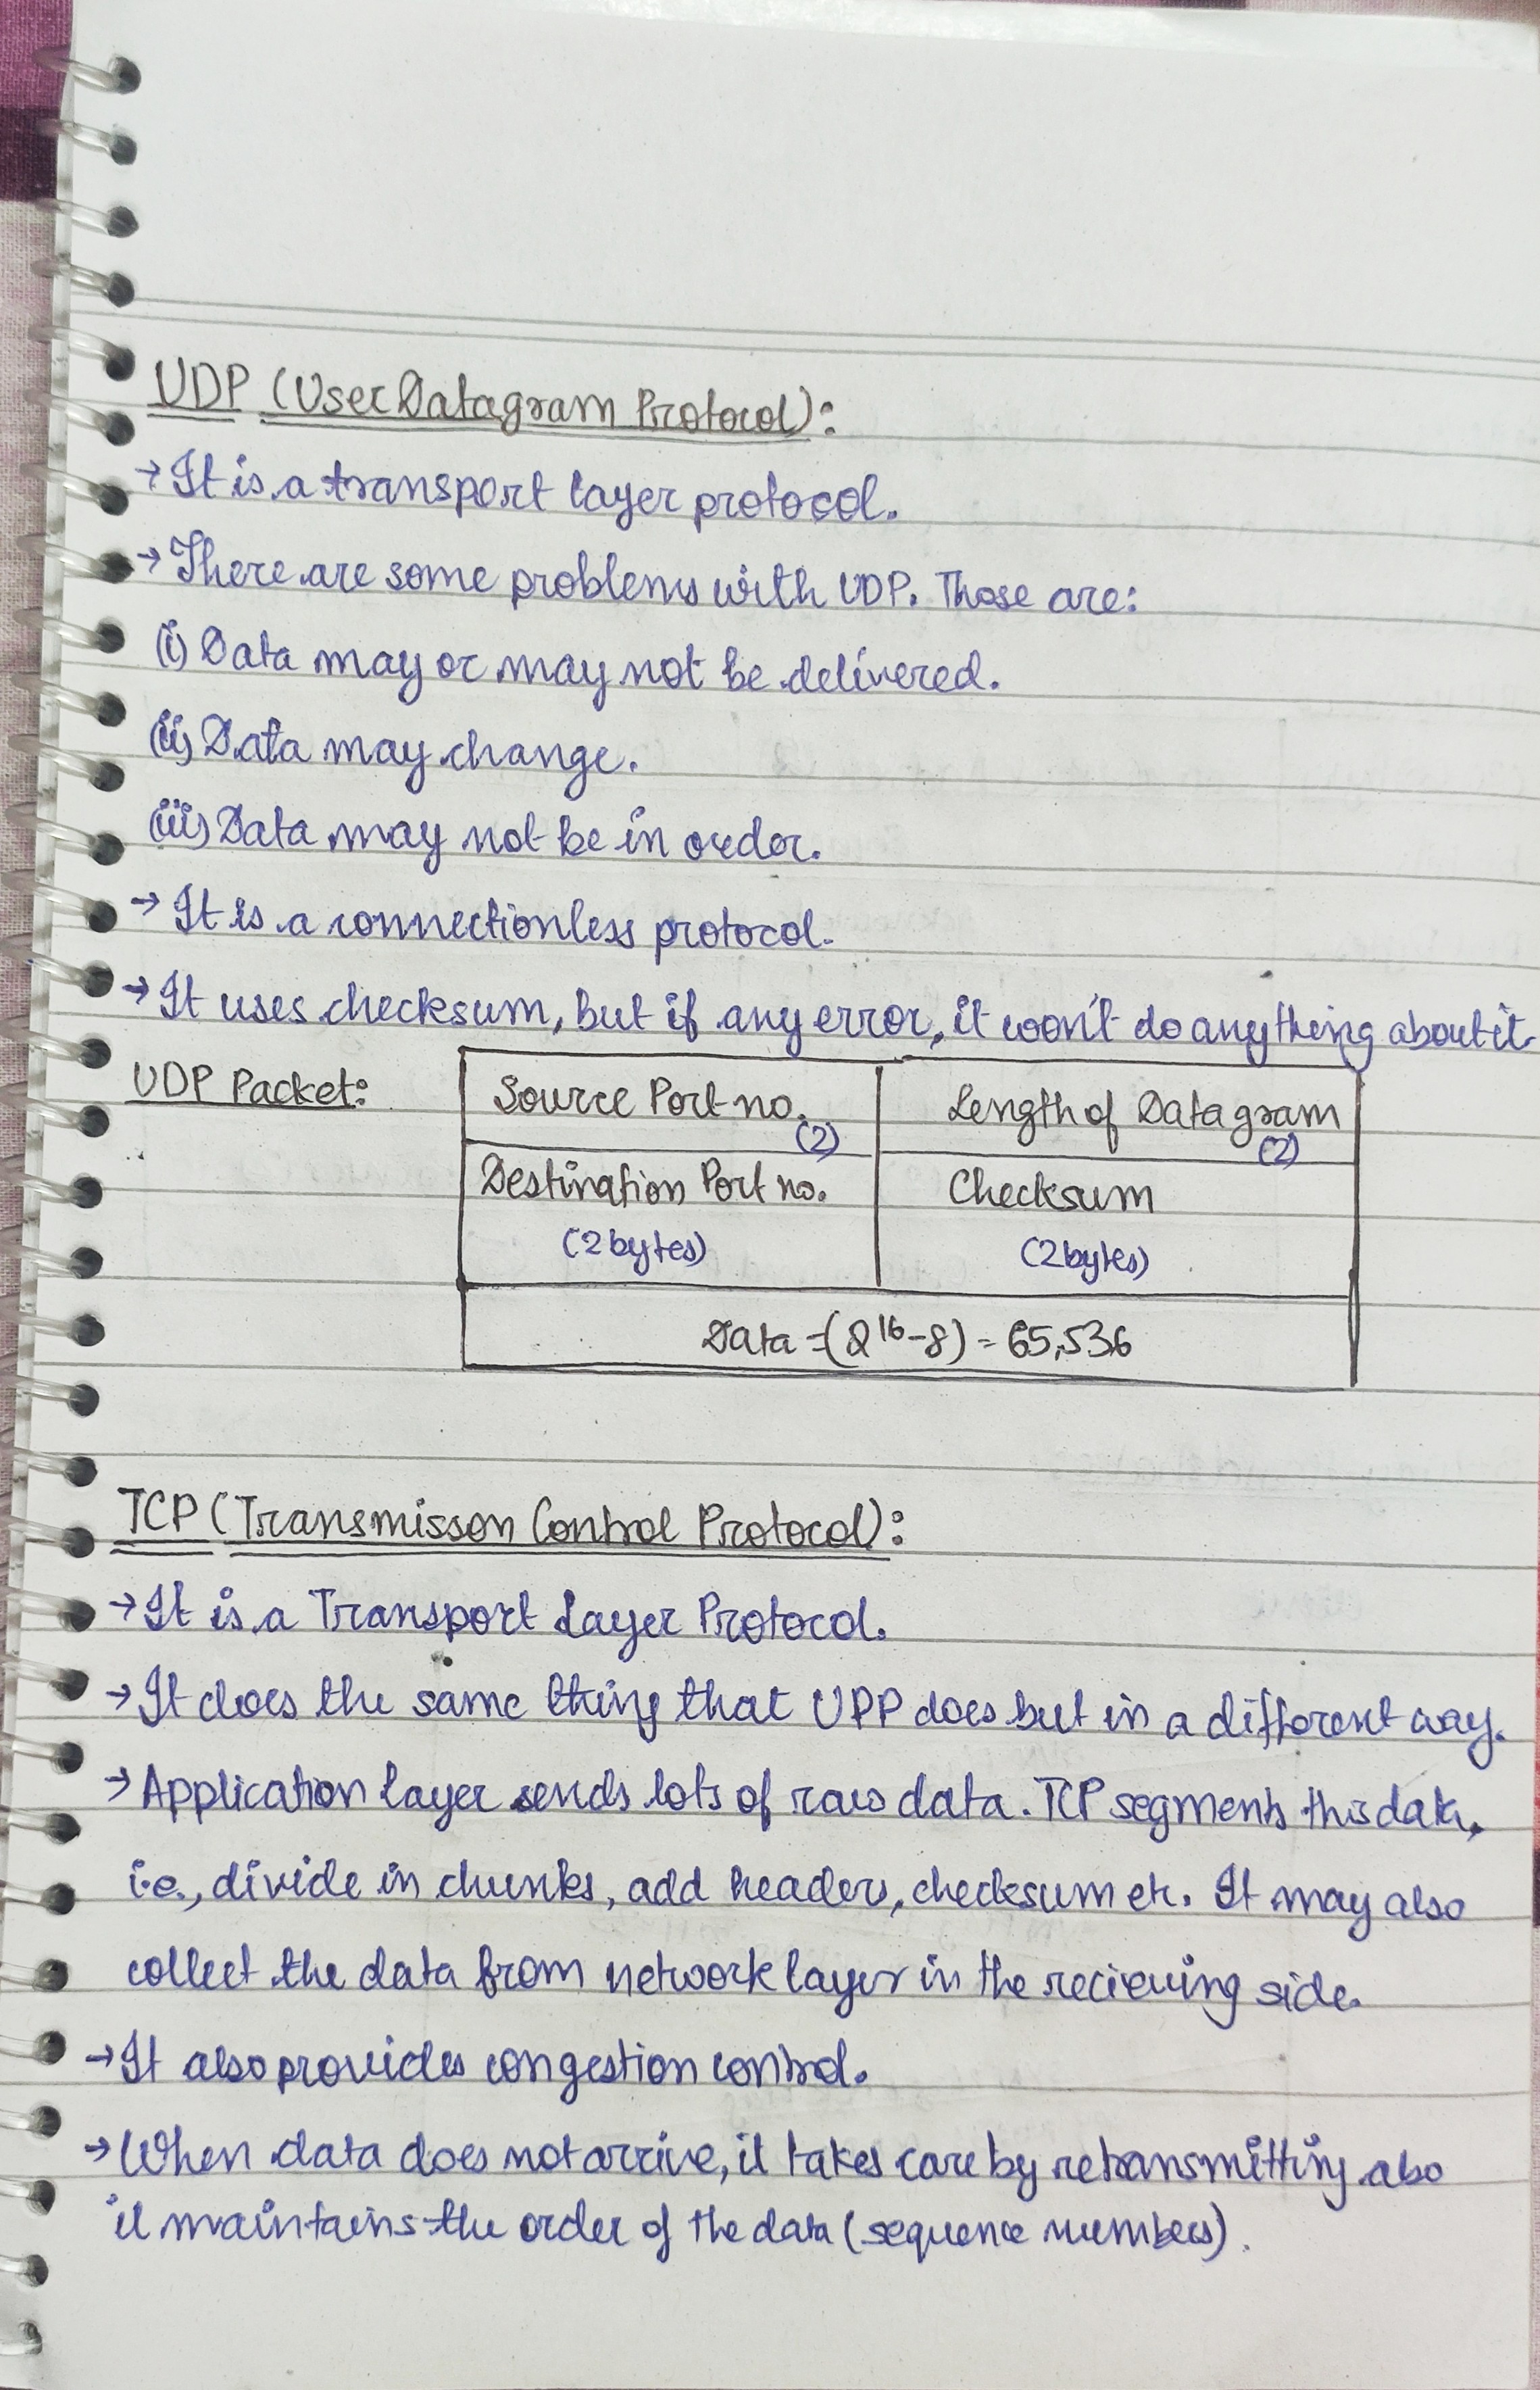 UDP (User Datagram Protocol):
→ It is a transport layer protocol.
→ There are some problems with UDP. Those are:
(i) Data may or may not be delivered.
(ii) Data may change.
(iii) Data may not be in order.
→ It is a connectionless protocol.
→ It uses checksum, but if any error, it won't do anything about it.
UDP Packet:
Source Port no. (2)
Length of Datagram (2)
Destination Port no. (2 bytes)
Checksum (2 bytes)
Data = (2¹⁶-8) = 65,536
TCP (Transmisson Control Protocol):
→ It is a Transport Layer Protocol.
→ It does the same thing that UDP does but in a different way.
→ Application layer sends lots of raw data. TCP segments this data,
i.e., divide in chunks, add headers, checksum etc. It may also
collect the data from network layer in the recieving side.
→ It also provides congestion control.
→ When data does not arrive, it takes care by retransmitting also
it maintains the order of the data (sequence numbers).